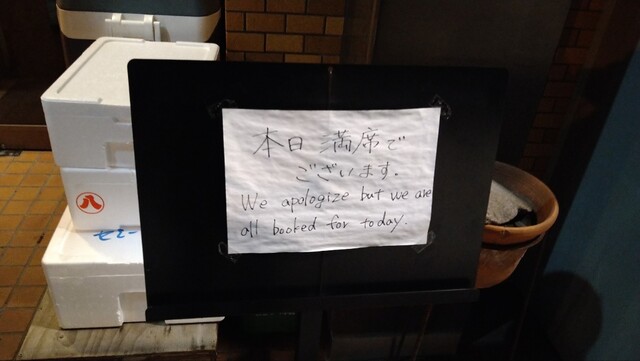 本日 満席で
ございます。
We apologize but we are
all booked for today.